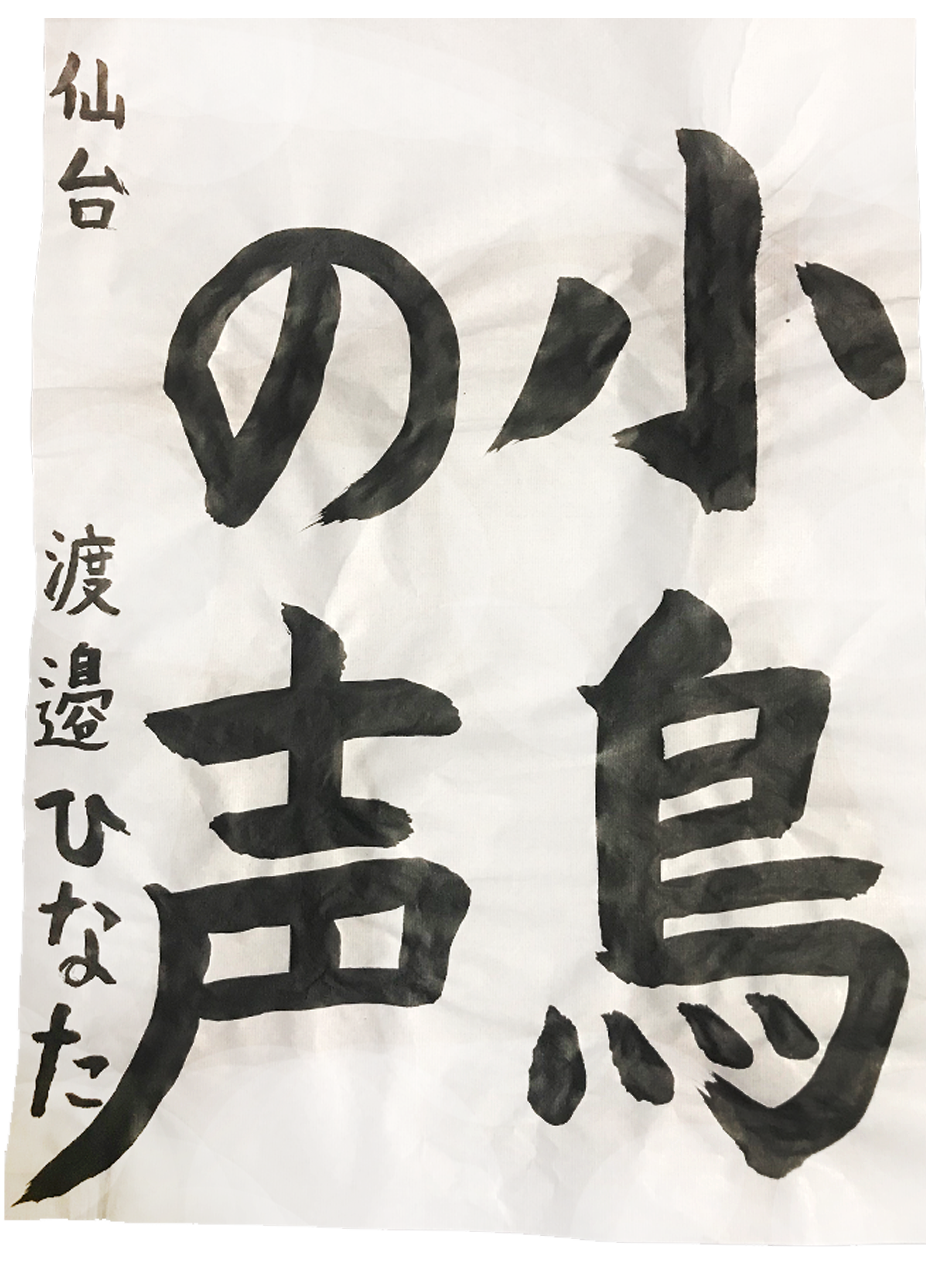 小鳥
の声
仙台 渡邉ひなた